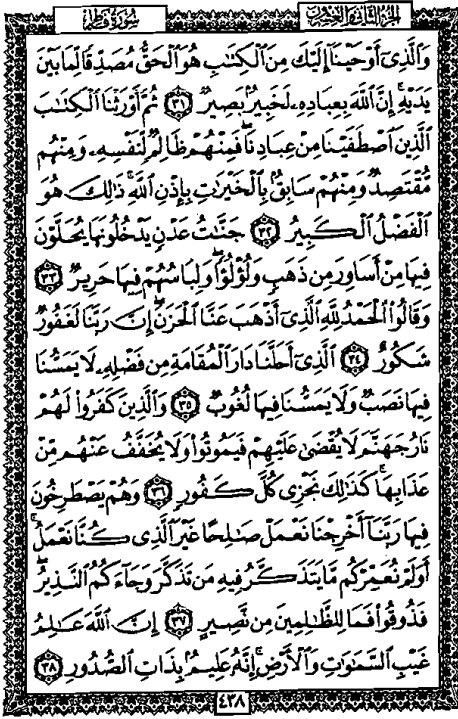 الجزء الثاني والعشرون
سورة فاطر
وَالَّذِىٓ أَوْحَيْنَآ إِلَيْكَ مِنَ الْكِتَٰبِ هُوَ الْحَقُّ مُصَدِّقًا لِّمَا بَيْنَ
يَدَيْهِ ۗ إِنَّ اللَّهَ بِعِبَادِهِۦ لَخَبِيرٌۢ بَصِيرٌ ٣١ ثُمَّ أَوْرَثْنَا الْكِتَٰبَ
الَّذِينَ اصْطَفَيْنَا مِنْ عِبَادِنَا ۖ فَمِنْهُمْ ظَالِمٌ لِّنَفْسِهِۦ وَمِنْهُم
مُّقْتَصِدٌ وَمِنْهُمْ سَابِقٌۢ بِالْخَيْرَٰتِ بِإِذْنِ اللَّهِ ۚ ذَٰلِكَ هُوَ
الْفَضْلُ الْكَبِيرُ ٣٢ جَنَّٰتُ عَدْنٍ يَدْخُلُونَهَا يُحَلَّوْنَ
فِيهَا مِنْ أَسَاوِرَ مِن ذَهَبٍ وَلُؤْلُؤًا ۖ وَلِبَاسُهُمْ فِيهَا حَرِيرٌ ٣٣
وَقَالُوا الْحَمْدُ لِلَّهِ الَّذِىٓ أَذْهَبَ عَنَّا الْحَزَنَ ۖ إِنَّ رَبَّنَا لَغَفُورٌ
شَكُورٌ ٣٤ الَّذِىٓ أَحَلَّنَا دَارَ الْمُقَامَةِ مِن فَضْلِهِۦ لَا يَمَسُّنَا
فِيهَا نَصَبٌ وَلَا يَمَسُّنَا فِيهَا لُغُوبٌ ٣٥ وَالَّذِينَ كَفَرُوا۟ لَهُمْ
نَارُ جَهَنَّمَ لَا يُقْضَىٰ عَلَيْهِمْ فَيَمُوتُوا۟ وَلَا يُخَفَّفُ عَنْهُم مِّنْ
عَذَابِهَا ۚ كَذَٰلِكَ نَجْزِى كُلَّ كَفُورٍ ٣٦ وَهُمْ يَصْطَرِخُونَ
فِيهَا رَبَّنَآ أَخْرِجْنَا نَعْمَلْ صَٰلِحًا غَيْرَ الَّذِى كُنَّا نَعْمَلُ ۚ
أَوَلَمْ نُعَمِّرْكُم مَّا يَتَذَكَّرُ فِيهِ مَن تَذَكَّرَ وَجَآءَكُمُ النَّذِيرُ ۖ
فَذُوقُوا۟ فَمَا لِلظَّٰلِمِينَ مِن نَّصِيرٍ ٣٧ إِنَّ اللَّهَ عَٰلِمُ
غَيْبِ السَّمَٰوَٰتِ وَالْأَرْضِ ۚ إِنَّهُۥ عَلِيمٌۢ بِذَاتِ الصُّدُورِ ٣٨
٤٣٨